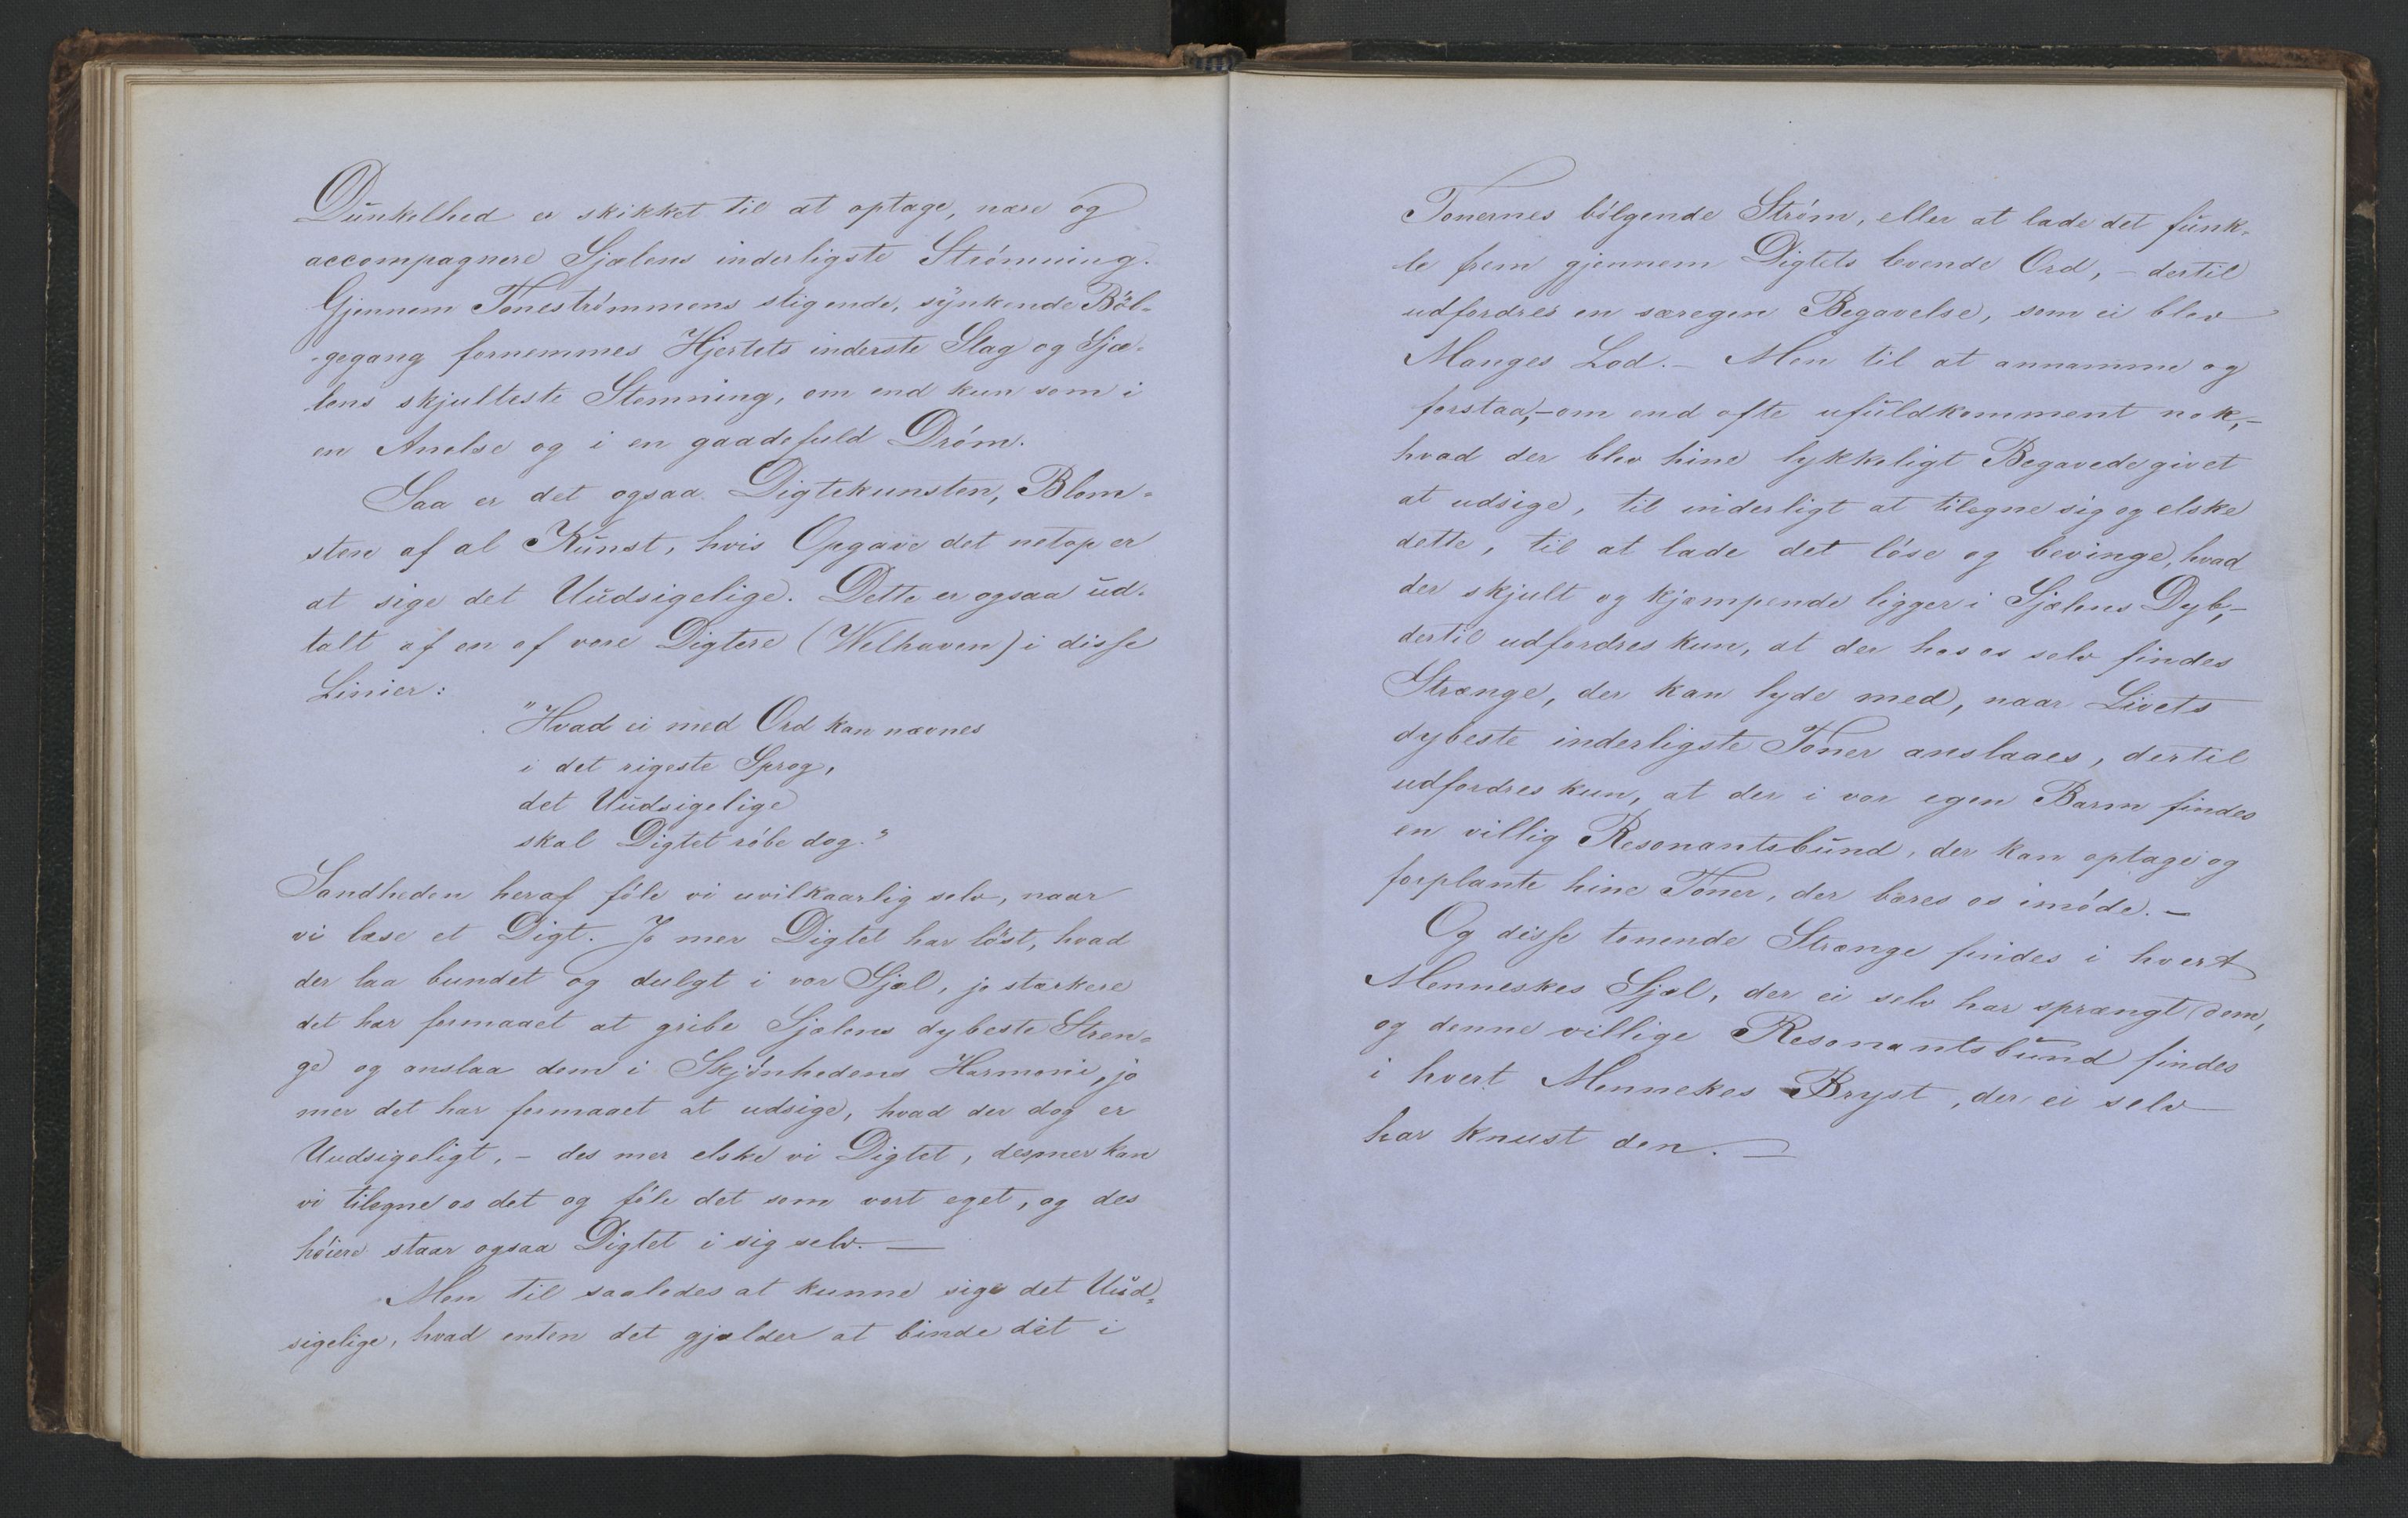 Dunkelhed er skikket til at optage, nære og
accompagnere Sjælens inderligste Strömning.
Gjennem Toneströmmens stigende, synkende Böl-
gegang fornemmes Hjertets inderste Slag og Sjæ-
lens skjulteste Stemning, om end kun som i
en Anelse og i en gaadefuld Dröm.
Saa er det ogsaa Digtekunsten, Blom-
sten af al Kunst, hvis Opgave det netop er
at sige det Uudsigelige. Dette er ogsaa ud-
talt af en af vore Digtere (Welhaven) i disse
Linier:
"Hvad ei med Ord kan nævnes
i det rigeste Sprog,
det Uudsigelige
skal Digtet röbe dog."
Sandheden heraf föle vi uvilkaarlig selv, naar
vi læse et Digt. Jo mer Digtet har löst, hvad
der laa bundet og dulgt i vor Sjæl, jo stærkere
det har formaaet at gribe Sjælens dybeste Stren-
ge og anslaa dem i Skjönhedens Harmoni, jo
mer det har formaaet at udsige, hvad der dog er
Uudsigeligt, – des mer elske vi Digtet, desmer kan
vi tilegne os det og föle det som vort eget, og des
höiere staar ogsaa Digtet i sig selv. —
Men til saaledes at kunne sige det Uud-
sigelige, hvad enten det gjælder at binde det i
Tonernes bölgende Ström, eller at lade det funk-
le frem gjennem Digtets levende Ord, – dertil
udfordres en særegen Begavelse, som ei blev
Manges Lod. – Men til at annamme og
forstaa, – om end ofte ufuldkomment nok, –
hvad der blev hine lykkeligt Begavede givet
at udsige, til inderligt at tilegne sig og elske
dette, til at lade det löse og bevinge, hvad
der skjult og kjæmpende ligger i Sjælens Dyb, –
dertil udfordres kun, at der hos os selv findes
Strænge, der kan lyde med, naar Livets
dybeste inderligste Toner anslaaes, dertil
udfordres kun, at der i vor egen Barm findes
en villig Resonantsbund, der kan optage og
forplante hine Toner, der bæres os imöde. –
Og disse tonende Strænge findes i hvert
Menneskes Sjæl, der ei selv har sprængt dem,
og denne villige Resonantsbund findes
i hvert Mennekes Bryst, der ei selv
har knust den. —